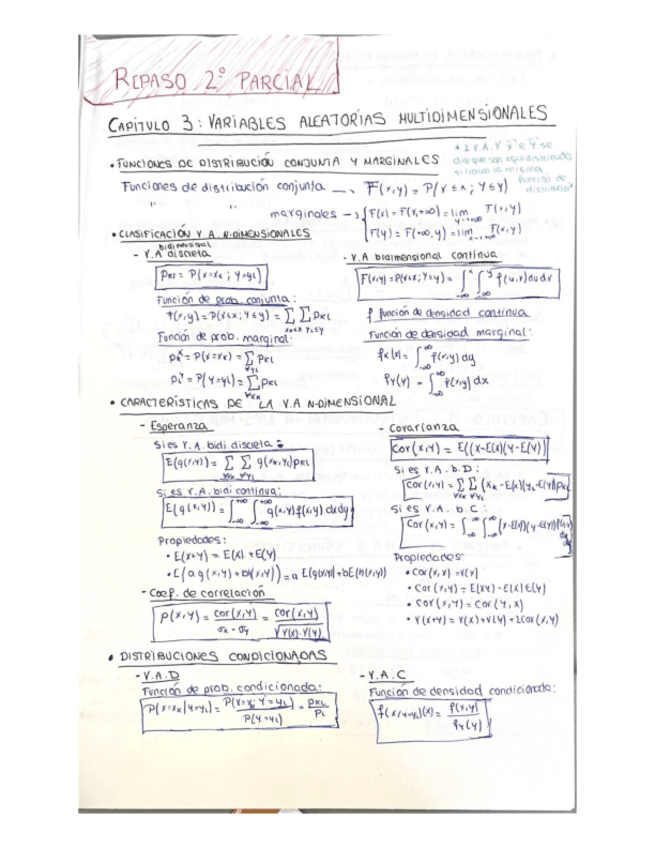 REPASO 2º PARCIAL
CAPÍTULO 3: VARIABLES ALEATORIAS MULTIDIMENSIONALES
* 2 V.A. V "X" e "Y" se
dice que son equidistribuidas
si tienen la misma
función de
distribución
• FUNCIONES DE DISTRIBUCIÓN CONJUNTA Y MARGINALES
Funciones de distribución conjunta → F(x,y) = P(X≤x; Y≤y)
" " marginales → { F(x) = F(x,+∞) = lim y→+∞ F(x,y)
F(y) = F(+∞,y) = lim x→+∞ F(x,y)
• CLASIFICACIÓN V.A. N-DIMENSIONALES
- V.A bidimensional discreta
PKL = P(X=xK; Y=yL)
Función de prob. conjunta:
F(x,y) = P(X≤x; Y≤y) = ∑ xK≤x ∑ yL≤y PKL
Función de prob. marginal:
PKˣ = P(X=xK) = ∑ ∀yL PKL
PLʸ = P(Y=yL) = ∑ ∀xK PKL
- V.A bidimensional continua
F(x,y) = P(X≤x; Y≤y) = ∫-∞^x ∫-∞^y f(u,v) du dv
f función de densidad continua
Función de densidad marginal:
fX(x) = ∫-∞^∞ f(x,y) dy
fY(y) = ∫-∞^∞ f(x,y) dx
• CARACTERÍSTICAS DE LA V.A N-DIMENSIONAL
- Esperanza
Si es V.A. bidi discreta:
E(g(x,y)) = ∑ ∀xK ∑ ∀yL g(xK,yL) PKL
Si es V.A. bidi continua:
E(g(x,y)) = ∫-∞^+∞ ∫-∞^+∞ g(x,y) f(x,y) dx dy
Propiedades:
• E(X+Y) = E(X) + E(Y)
• E(a g(x,y) + b h(x,y)) = a E(g(x,y)) + b E(h(x,y))
- Coef. de correlación
ρ(X,Y) = cov(X,Y) / σx · σy = cov(X,Y) / √V(X)·V(Y)
- Covarianza
Cov(X,Y) = E((X-E(X)(Y-E(Y))
Si es V.A. b.D:
Cov(X,Y) = ∑ ∀xK ∑ ∀yL (xK-E(X)(yL-E(Y)) PKL
Si es V.A. b.C:
Cov(X,Y) = ∫-∞^+∞ ∫-∞^+∞ (x-E(X))(y-E(Y)) f(x,y) dx dy
Propiedades:
• Cov(X,X) = V(X)
• Cov(X,Y) = E(XY) - E(X)E(Y)
• Cov(X,Y) = Cov(Y,X)
• V(X+Y) = V(X) + V(Y) + 2Cov(X,Y)
• DISTRIBUCIONES CONDICIONADAS
- V.A.D
Función de prob. condicionada:
P(X=xK|Y=yL) = P(X=xK; Y=yL) / P(Y=yL) = PKL / PL
- V.A.C
Función de densidad condicionada:
f(X/Y=yL)(x) = f(x,y) / fY(y)